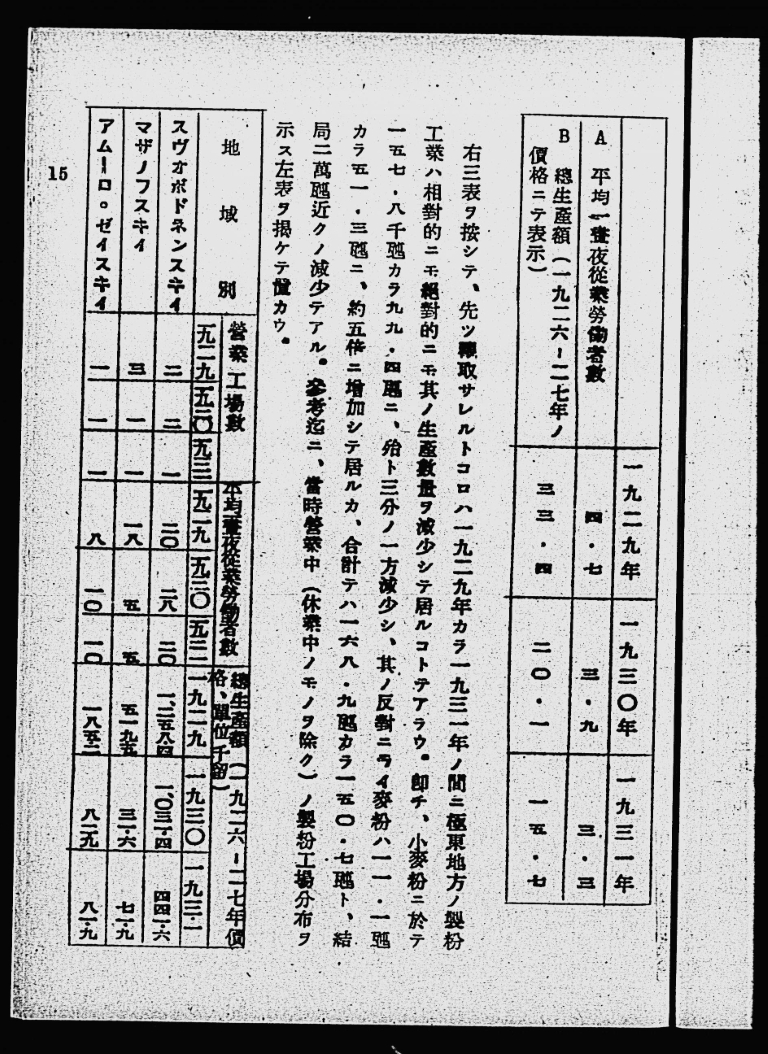 一九二九年
一九三〇年
一九三一年
A 平均一晝夜從業勞働者數
四・七
三・九
三・三
B 總生產額(一九二六-二七年ノ
價格ニテ表示)
三三・四
二〇・一
一五・七
右三表ヲ按シテ、先ツ取サレルトコロハ一九二九年カラ一九三一年ノ間ニ極東地方ノ製粉
工業ハ相對的ニモ絕對的ニモ其ノ生產數量ヲ減少シテ居ルコトテアラウ。卽チ、小麥粉ニ於テ
一五七・八千瓲カラ九九・四瓲ニ、殆ト三分ノ一方減少シ、其ノ反對ニライ麥粉ハ一一・一瓲
カラ五一・三瓲ニ、約五倍ニ增加シテ居ルカ、合計テハ一六八・九瓲カラ一五〇・七瓲ト、結
局二萬瓲近クノ減少テアル。參考迄ニ、當時營業中(休業中ノモノヲ除ク)ノ製粉工場分布ヲ
示ス左表ヲ揭ケテ置カウ。
地域別
營業工場數
平均一晝夜從業勞働者數
總生產額(一九二六-二七年價
格、單位千留)
一九二九
一九三〇
一九三一
一九二九
一九三〇
一九三一
一九二九
一九三〇
一九三一
スヴオボドネンスキイ
二
二
一
二〇
二八
二〇
一、二五八・四
一、〇三一・四
四四一・六
マザノフスキイ
三
一
一
一八
五
五
五一九・五
三一・六
七一・九
アムーロ。ゼイスキイ
一
一
一
八
一〇
一〇
一八五・二
八二・九
八一・九
15